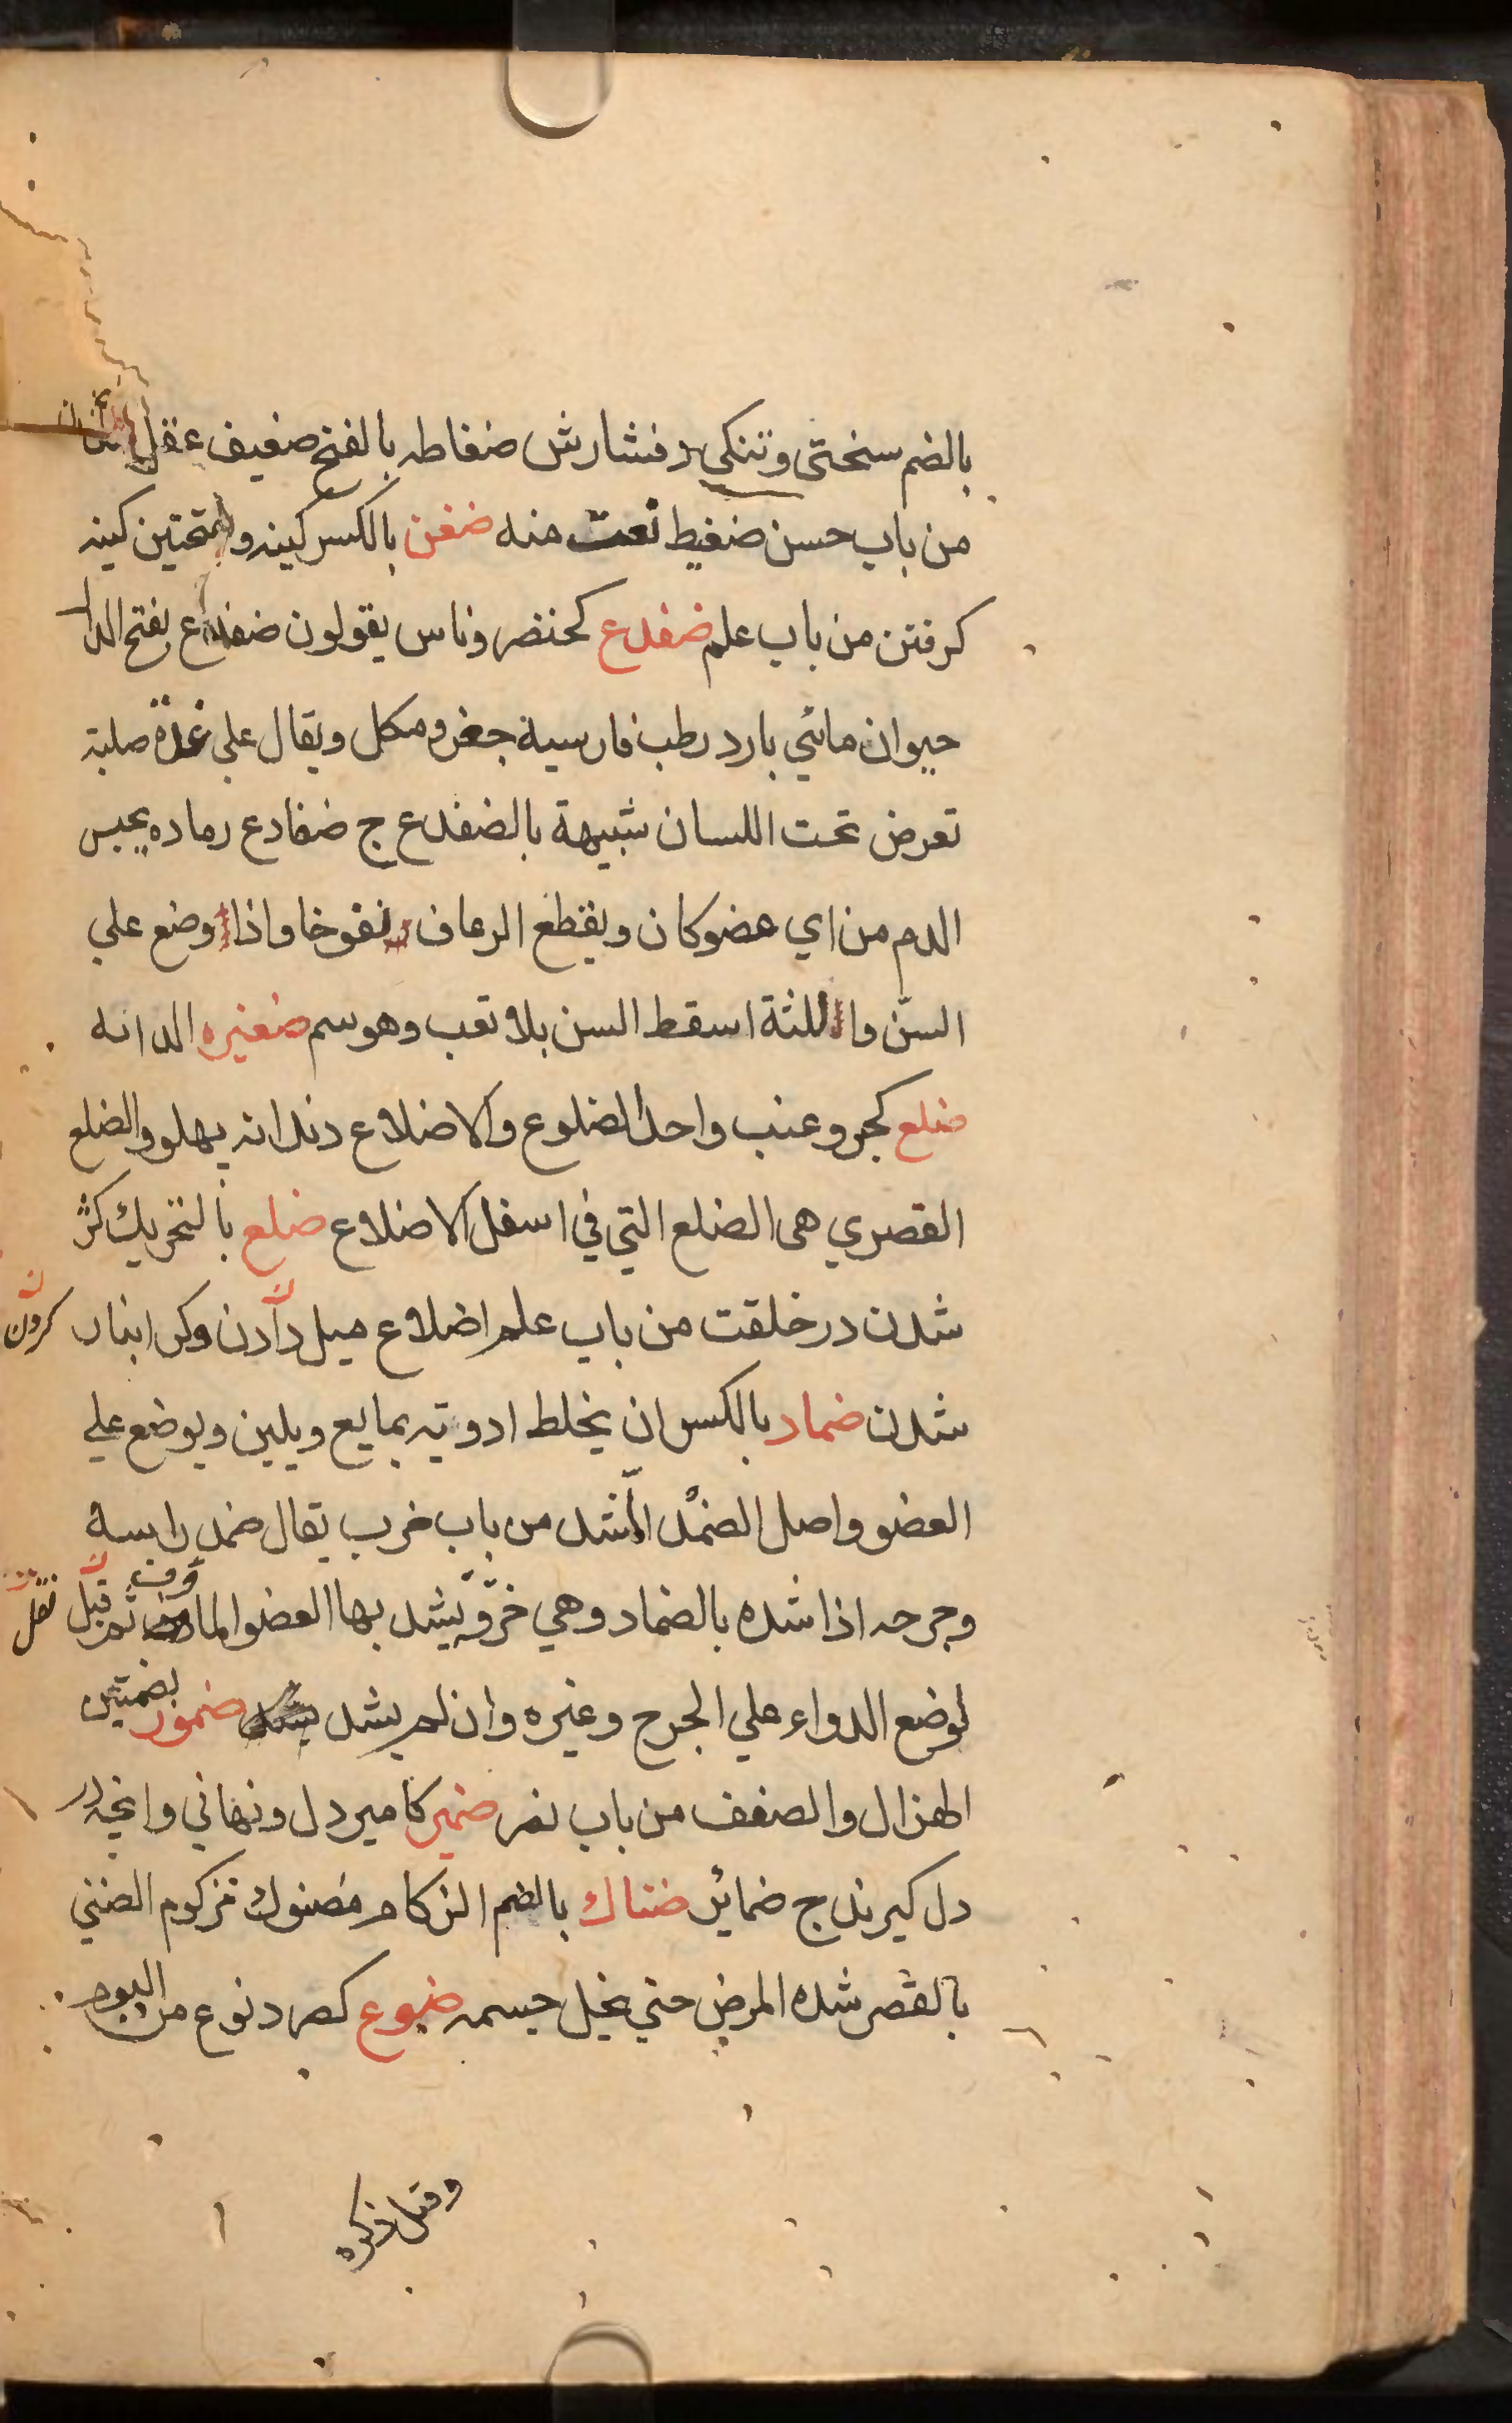 بالضم سختى وتنكى وفشارش ضغاطه بالفتح ضعيف عقل شدن
من باب حسن ضغيط نعت منه ضغن بالكسر كينه وبفتحتين كينه
كرفتن من باب علم ضفدع كخنصر وناس يقولون ضفدع بفتح الدال
حيوان مائي بارد رطب فارسية جغز ومكل ويقال علي غدة صلبة
تعرض تحت اللسان شبيهة بالضفدع ج ضفادع رماده يحبس
الدم من اي عضو كان ويقطع الرعاف نفوخا واذا وضع علي
السن واللثة اسقط السن بلا تعب وهو سم ضغيره الدانه
ضلع كجر وعنب واحد الضلوع والاضلاع دندانه پهلو والضلع
القصري هى الضلع التي في اسفل الاضلاع ضلع بالتحريك كژ
شدن در خلقت من باب علم اضلاع ميل دادن وكرانبار كردن
شدن ضماد بالكسر ان يخلط ادويه بمايع ويلين ويوضع علي
العضو واصل الضمد الشد من باب ضرب يقال ضمد راسه
وجرحه اذا شده بالضماد وهي خرقة يشد بها العضو الماوف ثم قيل نقل
لوضع الدواء علي الجرح وغيره وان لم يشد ضمور بضمتين
الهزال والضعف من باب نصر ضمير كامير دل ونهاني وانچه در
دل كيرند ج ضمائر ضناك بالضم الزكام مضنوك مزكوم الضنى
بالقصر شده المرض حتي نحيل جسمه ضوع كصرد نوع من البوم
وقتل ذكره